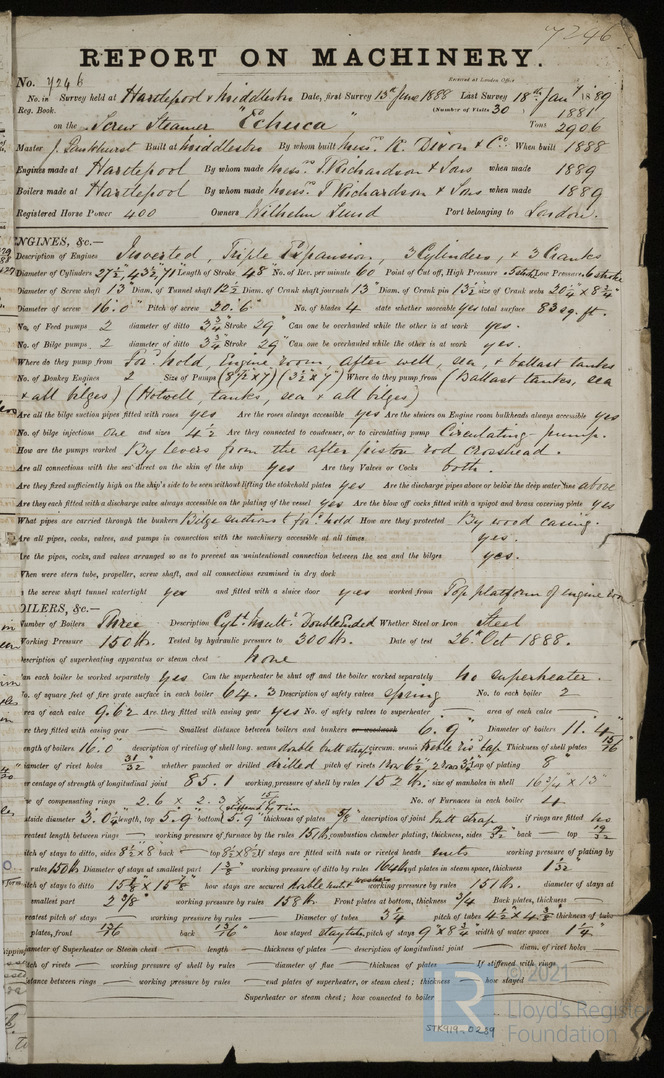 7246
REPORT ON MACHINERY.
No. 7246 Received at London Office
No. in Survey held at Hartlepool & Middlesbro Date, first Survey 13th June 1888 Last Survey 18th Jany 1889
Reg. Book. (Number of Visits 30
on the Screw Steamer "Echuca" Tons 2906
Master J. Built at Middlesbro By whom built Messrs R. Dixon & Co. When built 1888
Engines made at Hartlepool By whom made Messrs T. Richardson & Sons when made 1889
Boilers made at Hartlepool By whom made Messrs T Richardson & Sons when made 1889
Registered Horse Power 400 Owners Wilhelm Lund Port belonging to London.
ENGINES, &c.—
Description of Engines Inverted, Triple Expansion, 3 Cylinders, & 3 Cranks
Diameter of Cylinders 27½", 43½", 71 Length of Stroke 48" No. of Rev. per minute 60 Point of Cut off, High Pressure .5 stroke Low Pressure .6 stroke
Diameter of Screw shaft 13" Diam. of Tunnel shaft 12½ Diam. of Crank shaft journals 13" Diam. of Crank pin 13½ size of Crank webs 20¼ x 8¾"
Diameter of screw 16.0" Pitch of screw 20.6" No. of blades 4 state whether moveable yes total surface 83 sq. ft.
No. of Feed pumps 2 diameter of ditto 3¾" Stroke 29" Can one be overhauled while the other is at work yes.
No. of Bilge pumps 2 diameter of ditto 3¾" Stroke 29" Can one be overhauled while the other is at work yes.
Where do they pump from For'd hold, Engine room, after well, sea, & ballast tanks
No. of Donkey Engines 2 Size of Pumps (8½ x 7) (3½ x 7") Where do they pump from (Ballast tanks, sea
& all bilges) (Hotwell, tanks, sea & all bilges)
Are all the bilge suction pipes fitted with roses yes Are the roses always accessible yes Are the sluices on Engine room bulkheads always accessible yes
No. of bilge injections one and sizes 4½ Are they connected to condenser, or to circulating pump Circulating pump.
How are the pumps worked By levers from the after piston rod crosshead.
Are all connections with the sea direct on the skin of the ship yes Are they Valves or Cocks both.
Are they fixed sufficiently high on the ship's side to be seen without lifting the stokehold plates yes Are the discharge pipes above or below the deep water line above
Are they each fitted with a discharge valve always accessible on the plating of the vessel yes Are the blow off cocks fitted with a spigot and brass covering plate yes
What pipes are carried through the bunkers Bilge Suctions to for'd hold How are they protected By wood casing.
Are all pipes, cocks, valves, and pumps in connection with the machinery accessible at all times yes.
Are the pipes, cocks, and valves arranged so as to prevent an unintentional connection between the sea and the bilges yes.
When were stern tube, propeller, screw shaft, and all connections examined in dry dock
Is the screw shaft tunnel watertight yes and fitted with a sluice door yes worked from Top platform of engine room
BOILERS, &c.—
Number of Boilers Three Description Cyl. Mult. Double Ended Whether Steel or Iron Steel
Working Pressure 150 lbs. Tested by hydraulic pressure to 300 lbs. Date of test 26th Oct 1888.
Description of superheating apparatus or steam chest none
Can each boiler be worked separately yes Can the superheater be shut off and the boiler worked separately no superheater.
No. of square feet of fire grate surface in each boiler 64.3 Description of safety valves spring No. to each boiler 2
Area of each valve 9.62 Are they fitted with easing gear yes No. of safety valves to superheater — area of each valve —
Are they fitted with easing gear — Smallest distance between boilers and bunkers or woodwork 6.9" Diameter of boilers 11.4"
Length of boilers 16.0" description of riveting of shell long. seams double butt strap circum. seams lap Thickness of shell plates 15/16"
Diameter of rivet holes 31/32" whether punched or drilled drilled pitch of rivets Lap of plating 8"
Per centage of strength of longitudinal joint 85.1 working pressure of shell by rules 152 lbs. size of manholes in shell 16¾ x 13"
Size of compensating rings 2.6 x 2.3 x 15/16" No. of Furnaces in each boiler 4
Outside diameter 3.0¼ length, top 5.9" bottom 5.9" thickness of plates 5/8" description of joint butt strap if rings are fitted no
Greatest length between rings — working pressure of furnace by the rules 151 lbs. combustion chamber plating, thickness, sides 19/32" back — top 19/32
Pitch of stays to ditto, sides 8½ x 8" back — top 8½ x 8½ If stays are fitted with nuts or riveted heads nuts working pressure of plating by
rules 150 lbs Diameter of stays at smallest part 1⅜" working pressure of ditto by rules 164 lbs end plates in steam space, thickness 1 1/32"
Pitch of stays to ditto 15⅝" x 15⅝" how stays are secured double nuts & washers working pressure by rules 151 lbs. diameter of stays at
smallest part 2⅜" working pressure by rules 158 lbs. Front plates at bottom, thickness ¾" Back plates, thickness —
Greatest pitch of stays — working pressure by rules — Diameter of tubes 3¼ pitch of tubes 4½ x 4⅜ thickness of tube
plates, front 13/16 back 13/16" how stayed stay tubes pitch of stays 9" x 8¾ width of water spaces 1¼"
Diameter of Superheater or Steam chest — length — thickness of plates — description of longitudinal joint — diam. of rivet holes —
Pitch of rivets — working pressure of shell by rules — diameter of flue — thickness of plates — If stiffened with rings —
Distance between rings — working pressure by rules — end plates of superheater, or steam chest; thickness — how stayed —
Superheater or steam chest; how connected to boiler
STK419-0239
© 2021
Lloyd's Register
Foundation